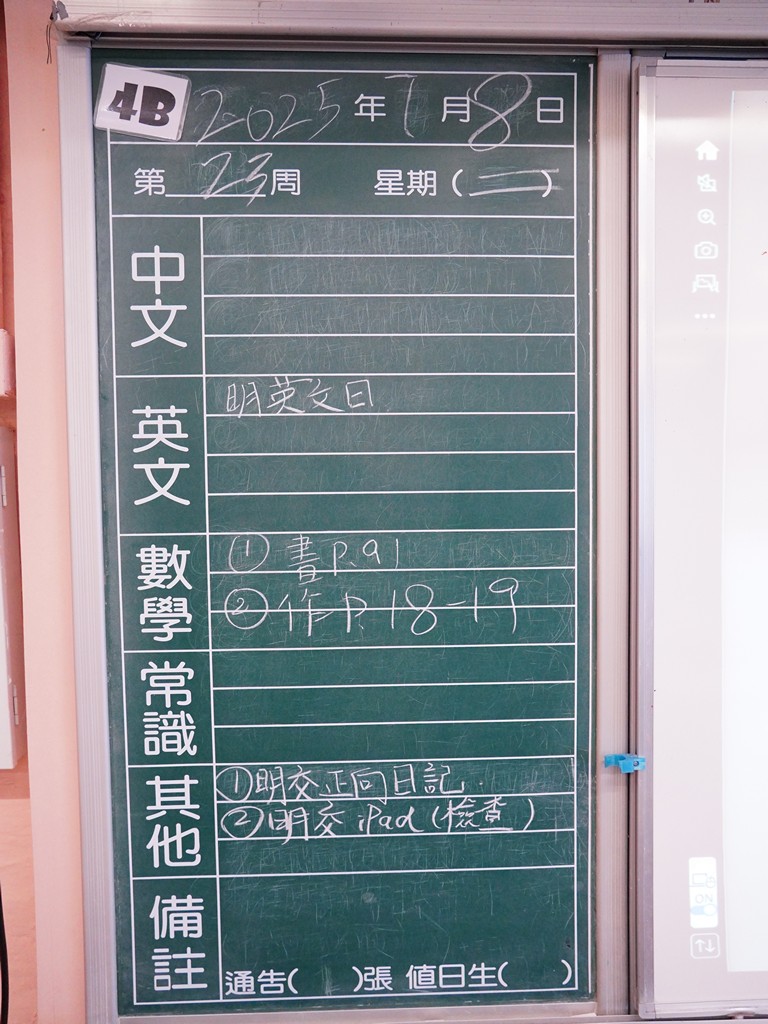 4B
2025年7月8日
第23周 星期(二)
中文
英文 明英文日
數學 ① 書 P.91
② 作 P.18-19
常識
其他 ①明交正向日記.
②明交 iPad (檢查)
備註
通告( )張 值日生( )
ON